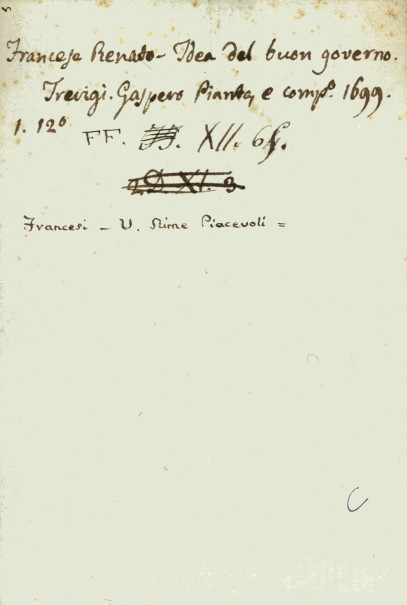 5
Francese Renato - Idea del buon governo.
Trevigi. Gaspero Pianta, e comp.º 1699.
1. 12º
FF. XII. 64.
2 D. XI. 3
Francesi - V. Rime Piacevoli =
C